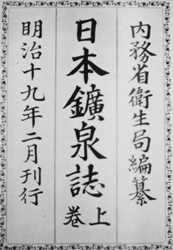 内務省衛生局編纂
日本鑛泉誌 上巻
明治十九年二月刊行